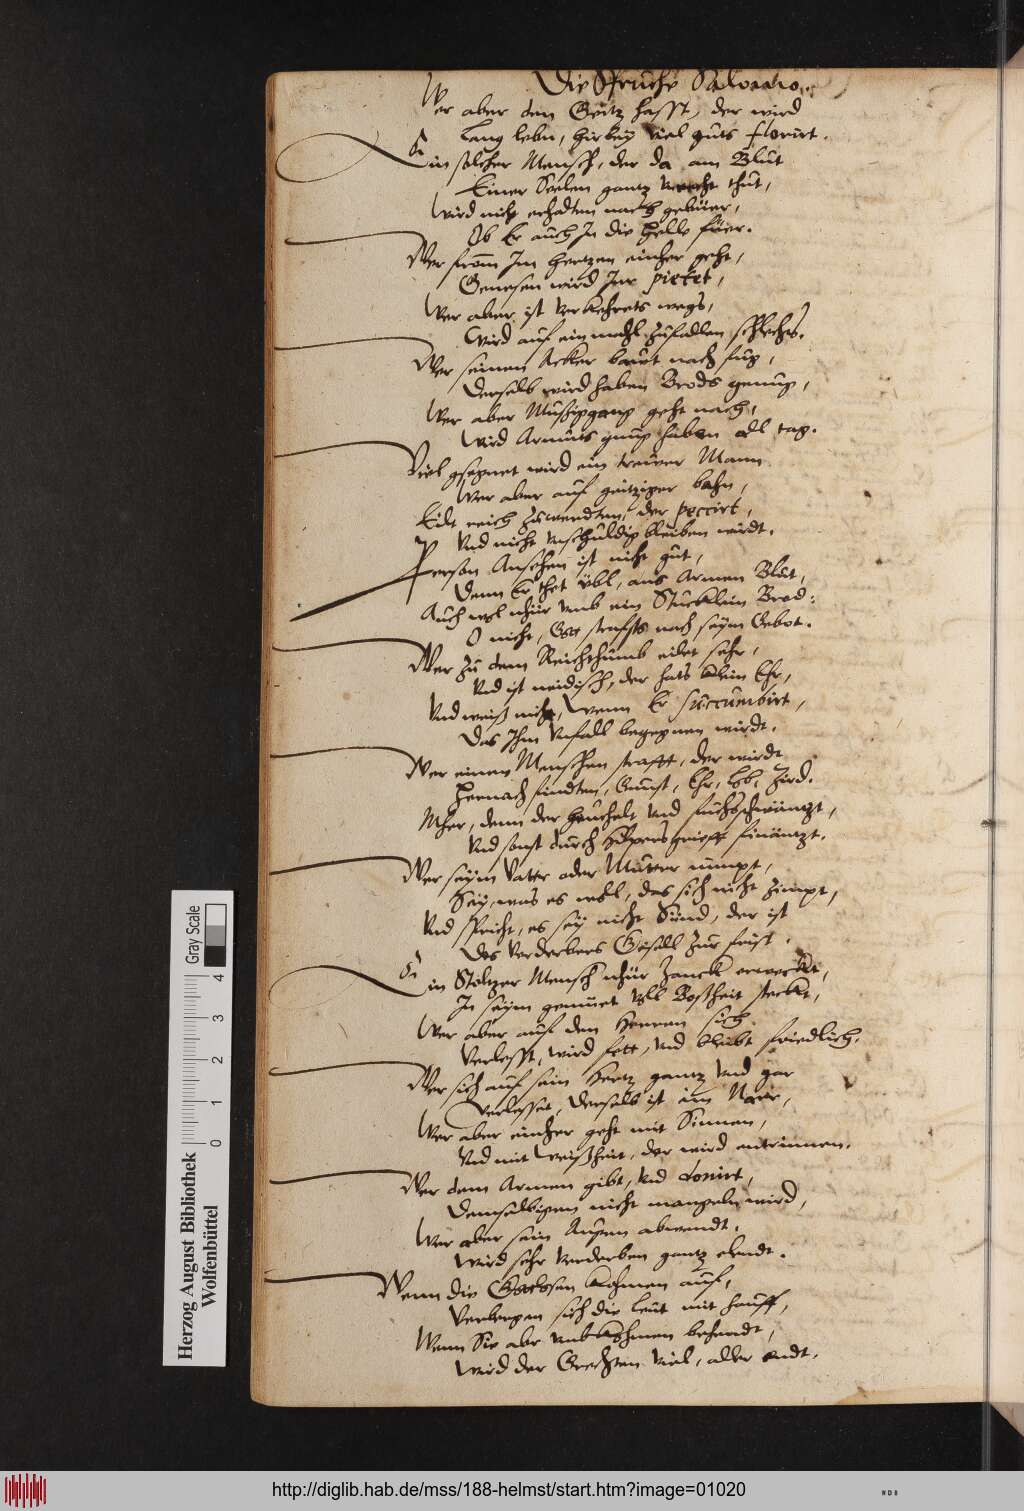 Die Sprüche Salomo.
Wer aber den Geitz hasst, der wird
Lang lebn, hir viel guts florirt.
Ein solcher Mensch, der da am Blut
Einer Seelen gantz vnrecht thut,
Wird nicht erhalten nach gebüer,
Ob Er auch In die Helle füer.
Wer from Im Hertzen einher geht,
Genesen wird Jnn pietet,
Wer aber ist verkehrets wegs,
Wird auf ein mahl zufallen schlechts.
Wer seinen Acker bawt nach fug,
Derselb wird haben Brods genug,
Wer aber Müssiggang geht nach,
Wird Armuts gnug haben all tag.
Viel gsegnet wird ein trewer Mann
Wer aber auf geitziger bahn,
Eilt reich zuwerdten, der peccirt,
Vnd nicht vnschuldig bleiben wirdt.
Person Ansehen ist nicht gut,
Denn Er thet übl, ans Armen Blut,
Auch wol nhür vmb ein Stücklein Brod:
O nicht, Gott straffts nach seim Gebot.
Wer zu dem Reichthumb eilet sehr,
Vnd ist neidisch, der hats klein Ehr,
Vnd weiß nicht, Wenn Er succumbirt,
Das Ihm Vnfall begegnen wirdt.
Wer einen Menschen strafft, der wirdt
Hernach findten, Gunst, Ehr, Lob, Zird.
Mher, denn der heuchelt Vnd fuchsschwäntzt,
Vnd sonst durch grieff finäntzt.
Wer seim Vatter oder Mutter nimpt,
Sey, was es woll, das sich nicht zimpt,
Vnd spricht, es sey nicht Sünd, der ist
Des Verderbers Gesell zur frist.
Ein Stoltzer Mensch nhür Zanck erweckt,
In seim gemuet Voll Boßheit steckt,
Wer aber auf den Herren sich
Verlesst, wird fett, vnd bleibt friedlich.
Wer sich auf sein Hertz gantz vnd gar
Verlesset, derselb ist ein Narr,
Wer aber einher geht mit Sinnen,
Vnd mit Weißheit, der wird entrinnen.
Wer dem Armen gibt, Vnd donirt,
Demselbigen nicht mangeln wird,
Wer aber sein Augen abwendt,
Wird sehr Verderben gantz elendt.
Wenn die Gottlosen kohmen auf,
Verbergen sich die leut mit hauff,
Wenn Sie abr vmbkohmen behendt,
Wird der Grechten viel, aller endt.
Herzog August Bibliothek
Wolfenbüttel
0 1 2 3 4
Gray Scale
http://diglib.hab.de/mss/188-helmst/start.htm?image=01020